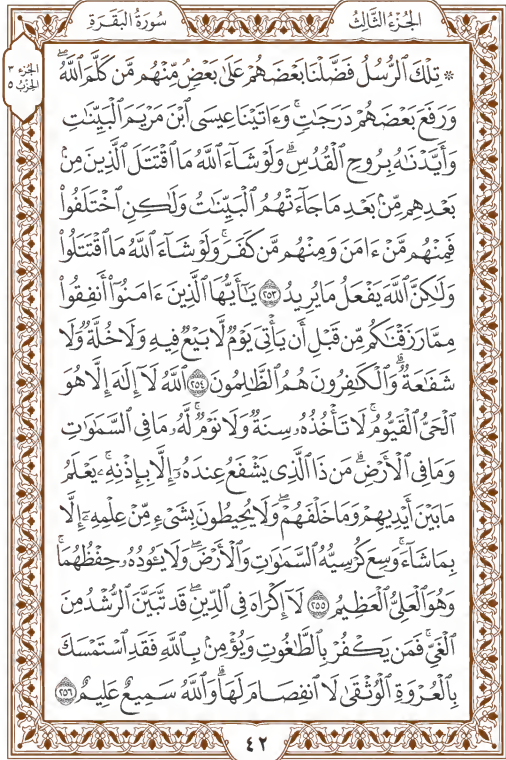 الجُزْءُ الثَّالِثُ
سُورَةُ البَقَرَةِ
الجُزْء ٣
الحِزْبُ ٥
۞ تِلْكَ ٱلرُّسُلُ فَضَّلْنَا بَعْضَهُمْ عَلَىٰ بَعْضٍ مِّنْهُم مَّن كَلَّمَ ٱللَّهُۖ
وَرَفَعَ بَعْضَهُمْ دَرَجَٰتٍۚ وَءَاتَيْنَا عِيسَى ٱبْنَ مَرْيَمَ ٱلْبَيِّنَٰتِ
وَأَيَّدْنَٰهُ بِرُوحِ ٱلْقُدُسِۗ وَلَوْ شَآءَ ٱللَّهُ مَا ٱقْتَتَلَ ٱلَّذِينَ مِنۢ
بَعْدِهِم مِّنۢ بَعْدِ مَا جَآءَتْهُمُ ٱلْبَيِّنَٰتُ وَلَٰكِنِ ٱخْتَلَفُوا۟
فَمِنْهُم مَّنْ ءَامَنَ وَمِنْهُم مَّن كَفَرَۚ وَلَوْ شَآءَ ٱللَّهُ مَا ٱقْتَتَلُوا۟
وَلَٰكِنَّ ٱللَّهَ يَفْعَلُ مَا يُرِيدُ ٢٥٣ يَٰٓأَيُّهَا ٱلَّذِينَ ءَامَنُوٓا۟ أَنفِقُوا۟
مِمَّا رَزَقْنَٰكُم مِّن قَبْلِ أَن يَأْتِىَ يَوْمٌ لَّا بَيْعٌ فِيهِ وَلَا خُلَّةٌ وَلَا
شَفَٰعَةٌۗ وَٱلْكَٰفِرُونَ هُمُ ٱلظَّٰلِمُونَ ٢٥٤ ٱللَّهُ لَآ إِلَٰهَ إِلَّا هُوَ
ٱلْحَىُّ ٱلْقَيُّومُۚ لَا تَأْخُذُهُۥ سِنَةٌ وَلَا نَوْمٌۚ لَّهُۥ مَا فِى ٱلسَّمَٰوَٰتِ
وَمَا فِى ٱلْأَرْضِۗ مَن ذَا ٱلَّذِى يَشْفَعُ عِندَهُۥٓ إِلَّا بِإِذْنِهِۦۚ يَعْلَمُ
مَا بَيْنَ أَيْدِيهِمْ وَمَا خَلْفَهُمْۖ وَلَا يُحِيطُونَ بِشَىْءٍ مِّنْ عِلْمِهِۦٓ إِلَّا
بِمَا شَآءَۚ وَسِعَ كُرْسِيُّهُ ٱلسَّمَٰوَٰتِ وَٱلْأَرْضَۖ وَلَا يَـُٔودُهُۥ حِفْظُهُمَاۚ
وَهُوَ ٱلْعَلِىُّ ٱلْعَظِيمُ ٢٥٥ لَآ إِكْرَاهَ فِى ٱلدِّينِۖ قَد تَّبَيَّنَ ٱلرُّشْدُ مِنَ
ٱلْغَىِّۚ فَمَن يَكْفُرْ بِٱلطَّٰغُوتِ وَيُؤْمِنۢ بِٱللَّهِ فَقَدِ ٱسْتَمْسَكَ
بِٱلْعُرْوَةِ ٱلْوُثْقَىٰ لَا ٱنفِصَامَ لَهَاۗ وَٱللَّهُ سَمِيعٌ عَلِيمٌ ٢٥٦
٤٢